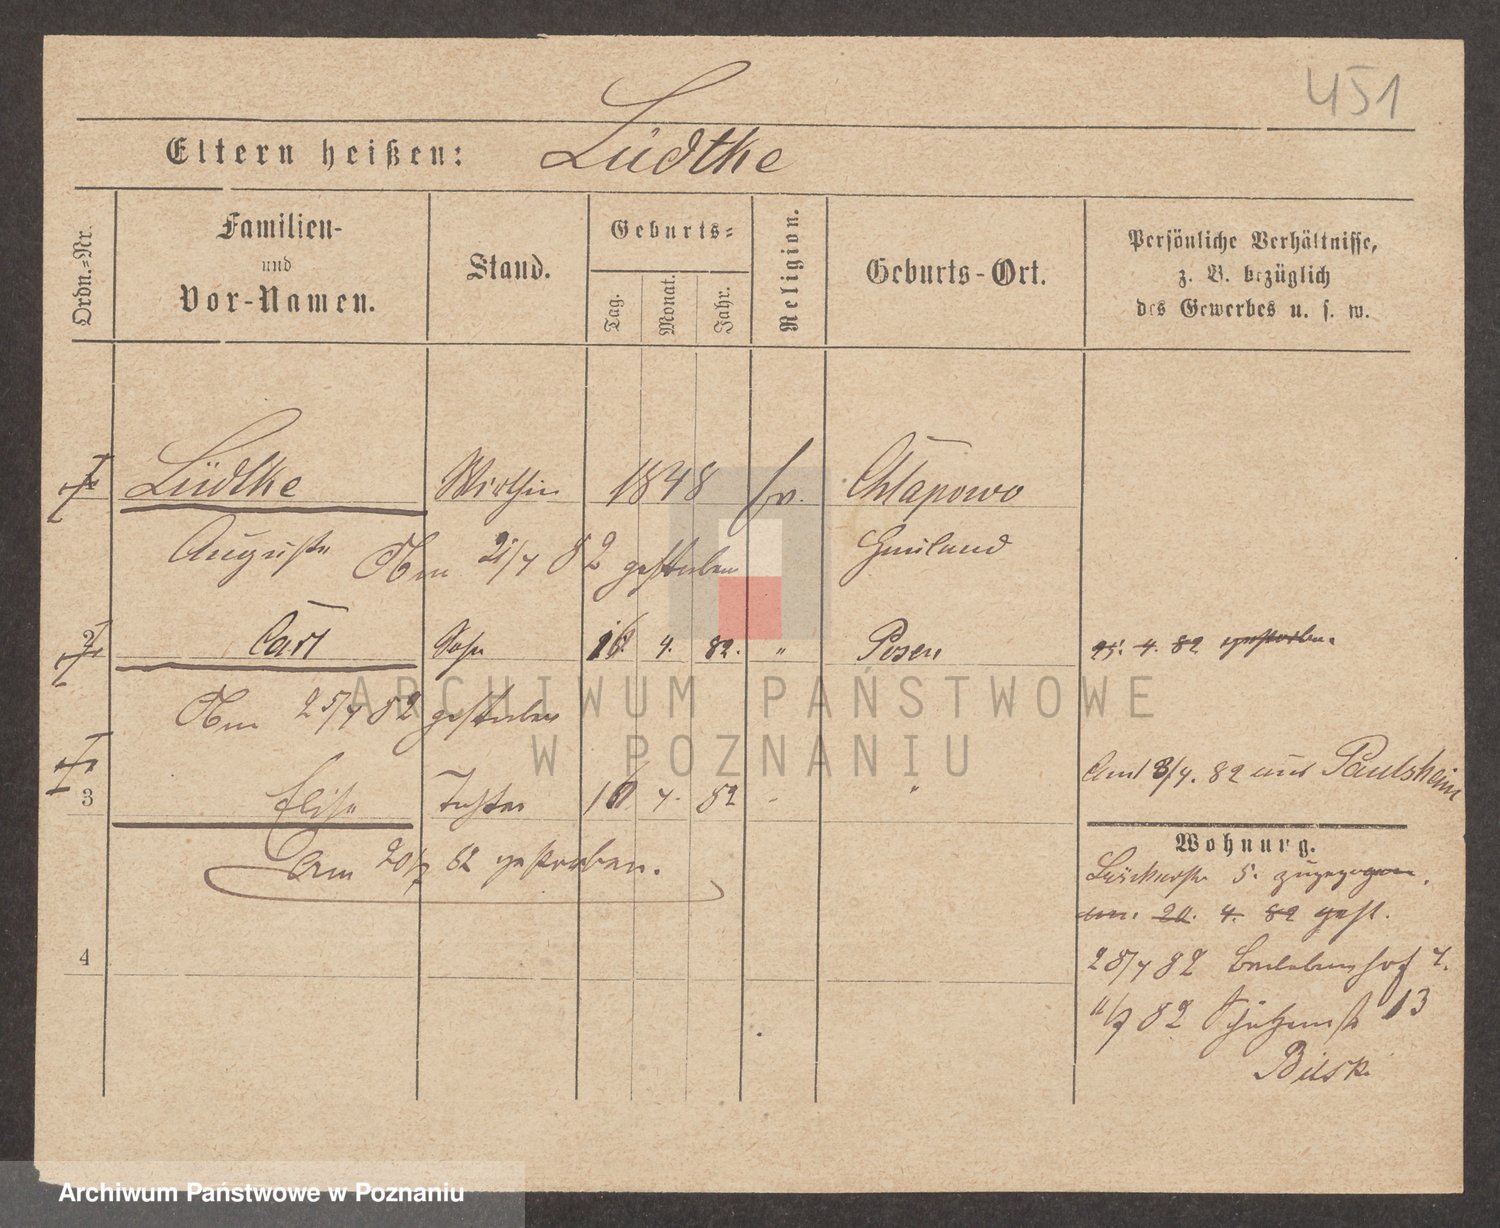 451
Eltern heißen: Lüdtke
Ordn.-Nr.
Familien-
und
Vor-Namen.
Stand.
Geburts-
Tag.
Monat.
Jahr.
Religion.
Geburts-Ort.
Persönliche Verhältnisse,
z. B. bezüglich
des Gewerbes u. s. w.
Lüdtke Wirthin 1848 ev. Chlapowo
Auguste Am 21/4 82 gestorben
2 Carl Sohn 16 4. 82. " Posen 25. 4. 82 gestorben.
Am 25/4 82 gestorben
3 Elise Tochter 16 4. 82 " Am 8/4. 82 aus Paulshain
Am 20/7 82 gestorben.
Wohnung.
5. zugezogen.
am. 20. 4. 82 gest.
4
28/4 82 4.
11/7 82 Schützenstr 13
Bilski
ARCHIWUM PAŃSTWOWE
W POZNANIU
Archiwum Państwowe w Poznaniu